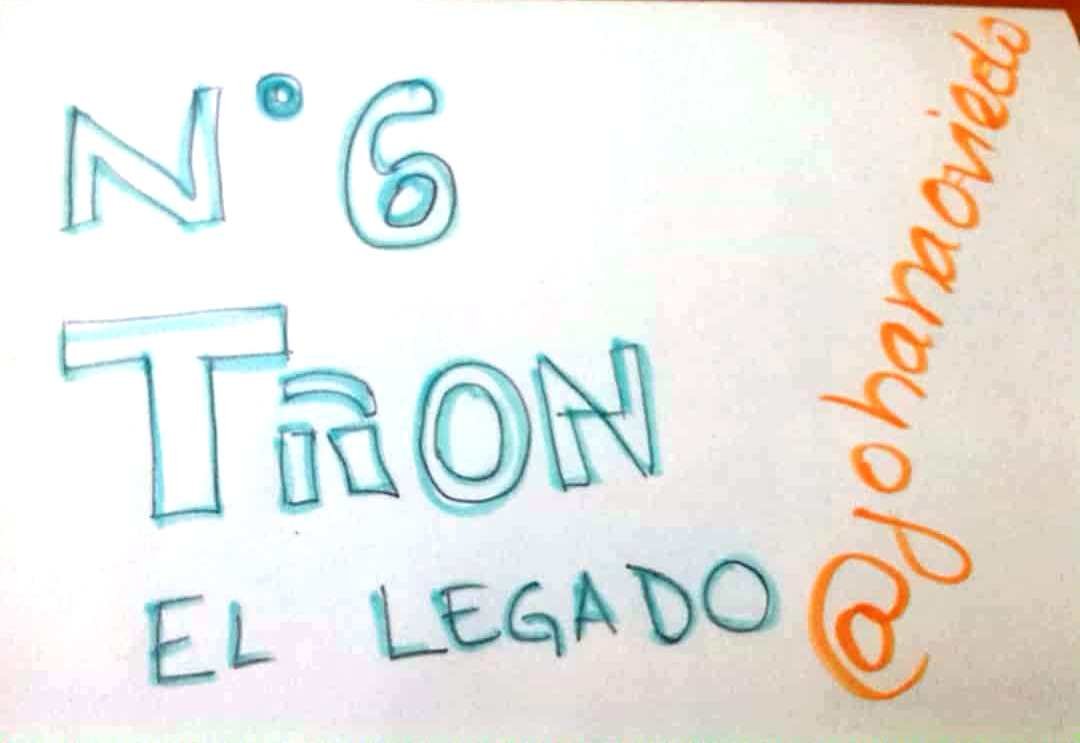 N° 6
TRON
EL LEGADO
@johanaoviedo